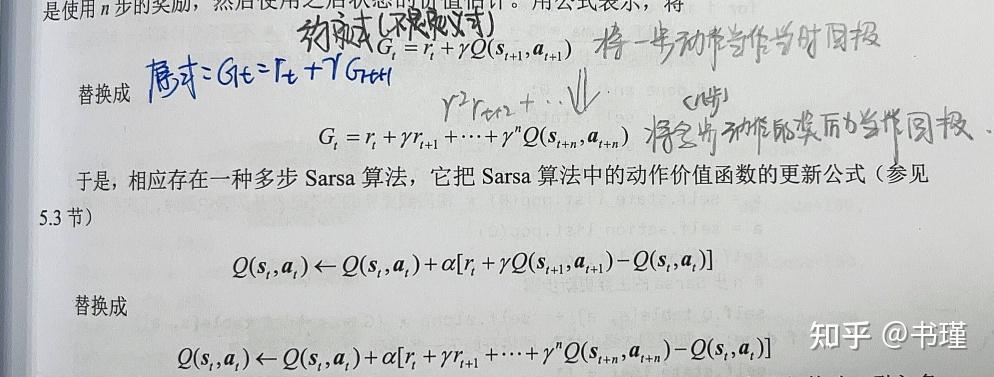 是使用 n 步的奖励，然后使用之后状态的价值估计。用公式表示，将
约束式（不是定义式）
G_t = r_t + γQ(s_{t+1}, a_{t+1}) 将一步动作当作当时回报
替换成 原式：G_t = r_t + γG_{t+1}
γ²r_{t+2} + ⋯ ⇓ （n步）
G_t = r_t + γr_{t+1} + ⋯ + γ^n Q(s_{t+n}, a_{t+n}) 将 步动作的奖励当作回报.
于是，相应存在一种多步 Sarsa 算法，它把 Sarsa 算法中的动作价值函数的更新公式（参见
5.3 节）
Q(s_t, a_t) ← Q(s_t, a_t) + α[r_t + γQ(s_{t+1}, a_{t+1}) − Q(s_t, a_t)]
替换成
Q(s_t, a_t) ← Q(s_t, a_t) + α[r_t + γr_{t+1} + ⋯ + γ^n Q(s_{t+n}, a_{t+n}) − Q(s_t, a_t)]
知乎 @书瑾